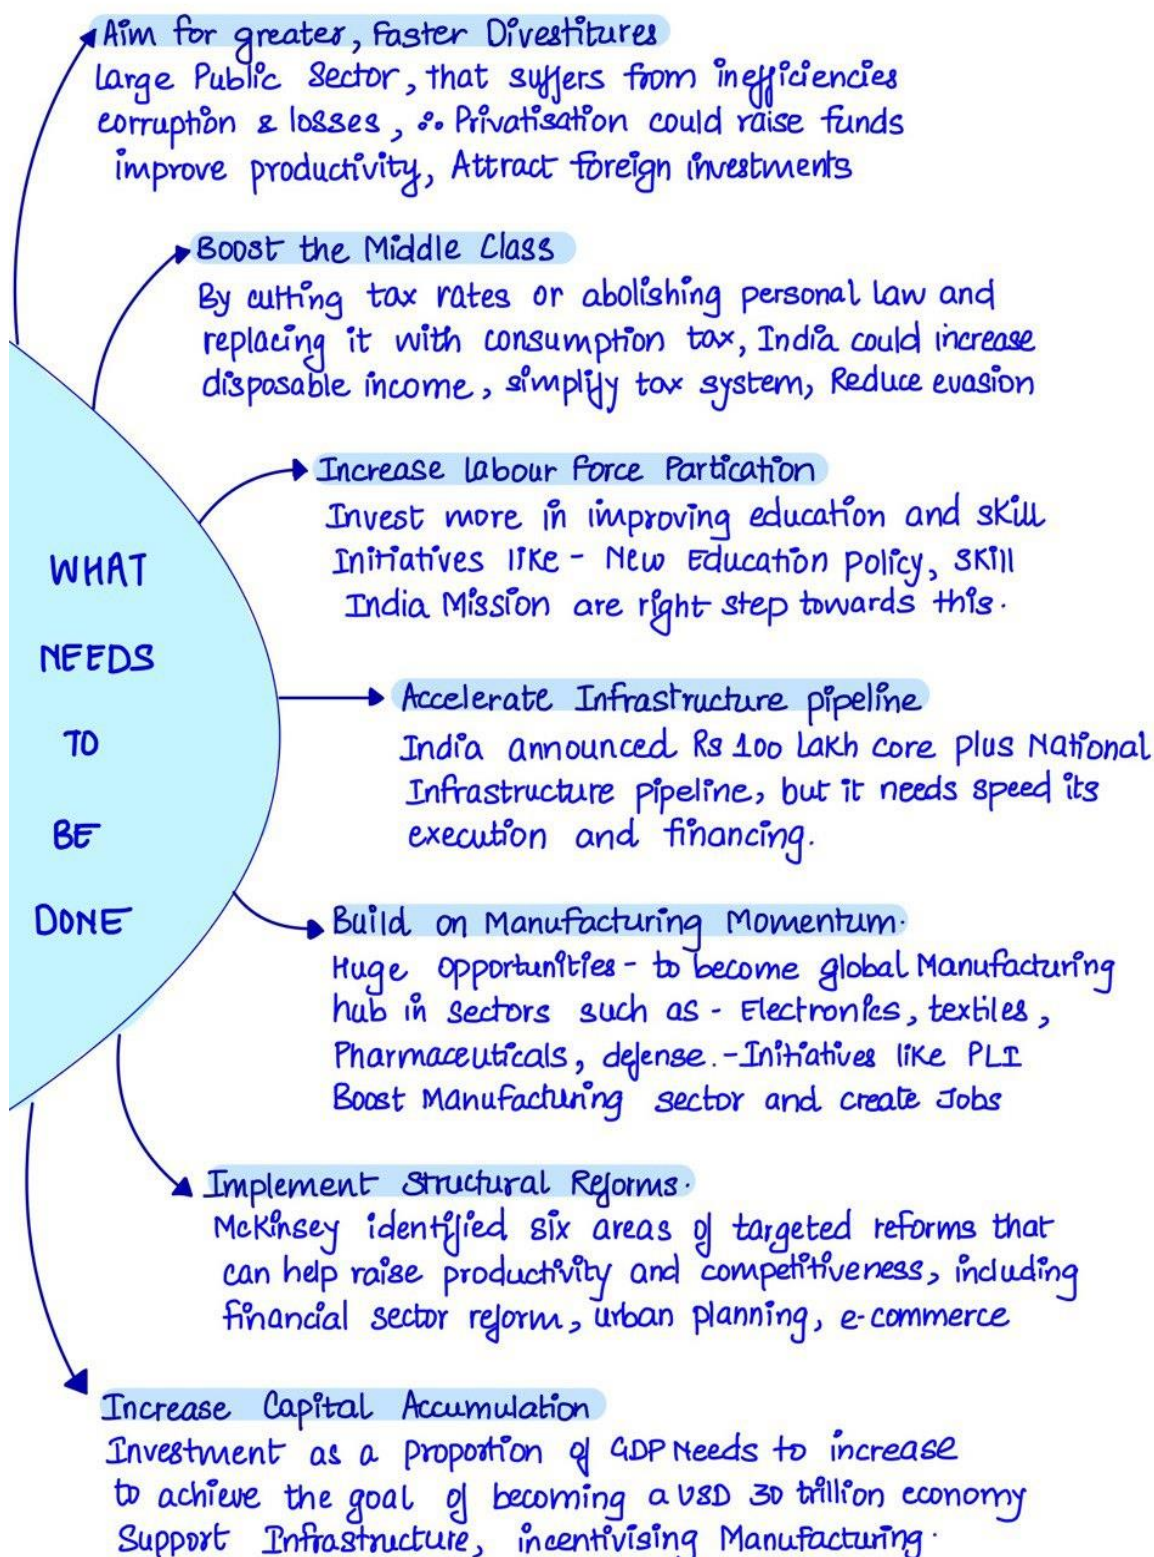 Aim for greater, Faster Divestitures
Large Public Sector, that suffers from inefficiencies
corruption & losses, ∴ Privatisation could raise funds
improve productivity, Attract foreign investments
Boost the Middle Class
By cutting tax rates or abolishing personal law and
replacing it with consumption tax, India could increase
disposable income, simplify tax system, Reduce evasion
Increase Labour Force Partication
Invest more in improving education and skill
Initiatives like - New Education Policy, Skill
India Mission are right step towards this.
WHAT
NEEDS
TO
BE
DONE
Accelerate Infrastructure pipeline
India announced Rs 100 Lakh core plus National
Infrastructure pipeline, but it needs speed its
execution and financing.
Build on Manufacturing Momentum.
Huge opportunities - to become global Manufacturing
hub in sectors such as - Electronics, textiles,
Pharmaceuticals, defense. - Initiatives like PLI
Boost Manufacturing sector and create Jobs
Implement Structural Reforms.
McKinsey identified six areas of targeted reforms that
can help raise productivity and competitiveness, including
financial sector reform, urban planning, e-commerce
Increase Capital Accumulation
Investment as a proportion of GDP Needs to increase
to achieve the goal of becoming a USD 30 trillion economy
Support Infrastructure, incentivising Manufacturing.